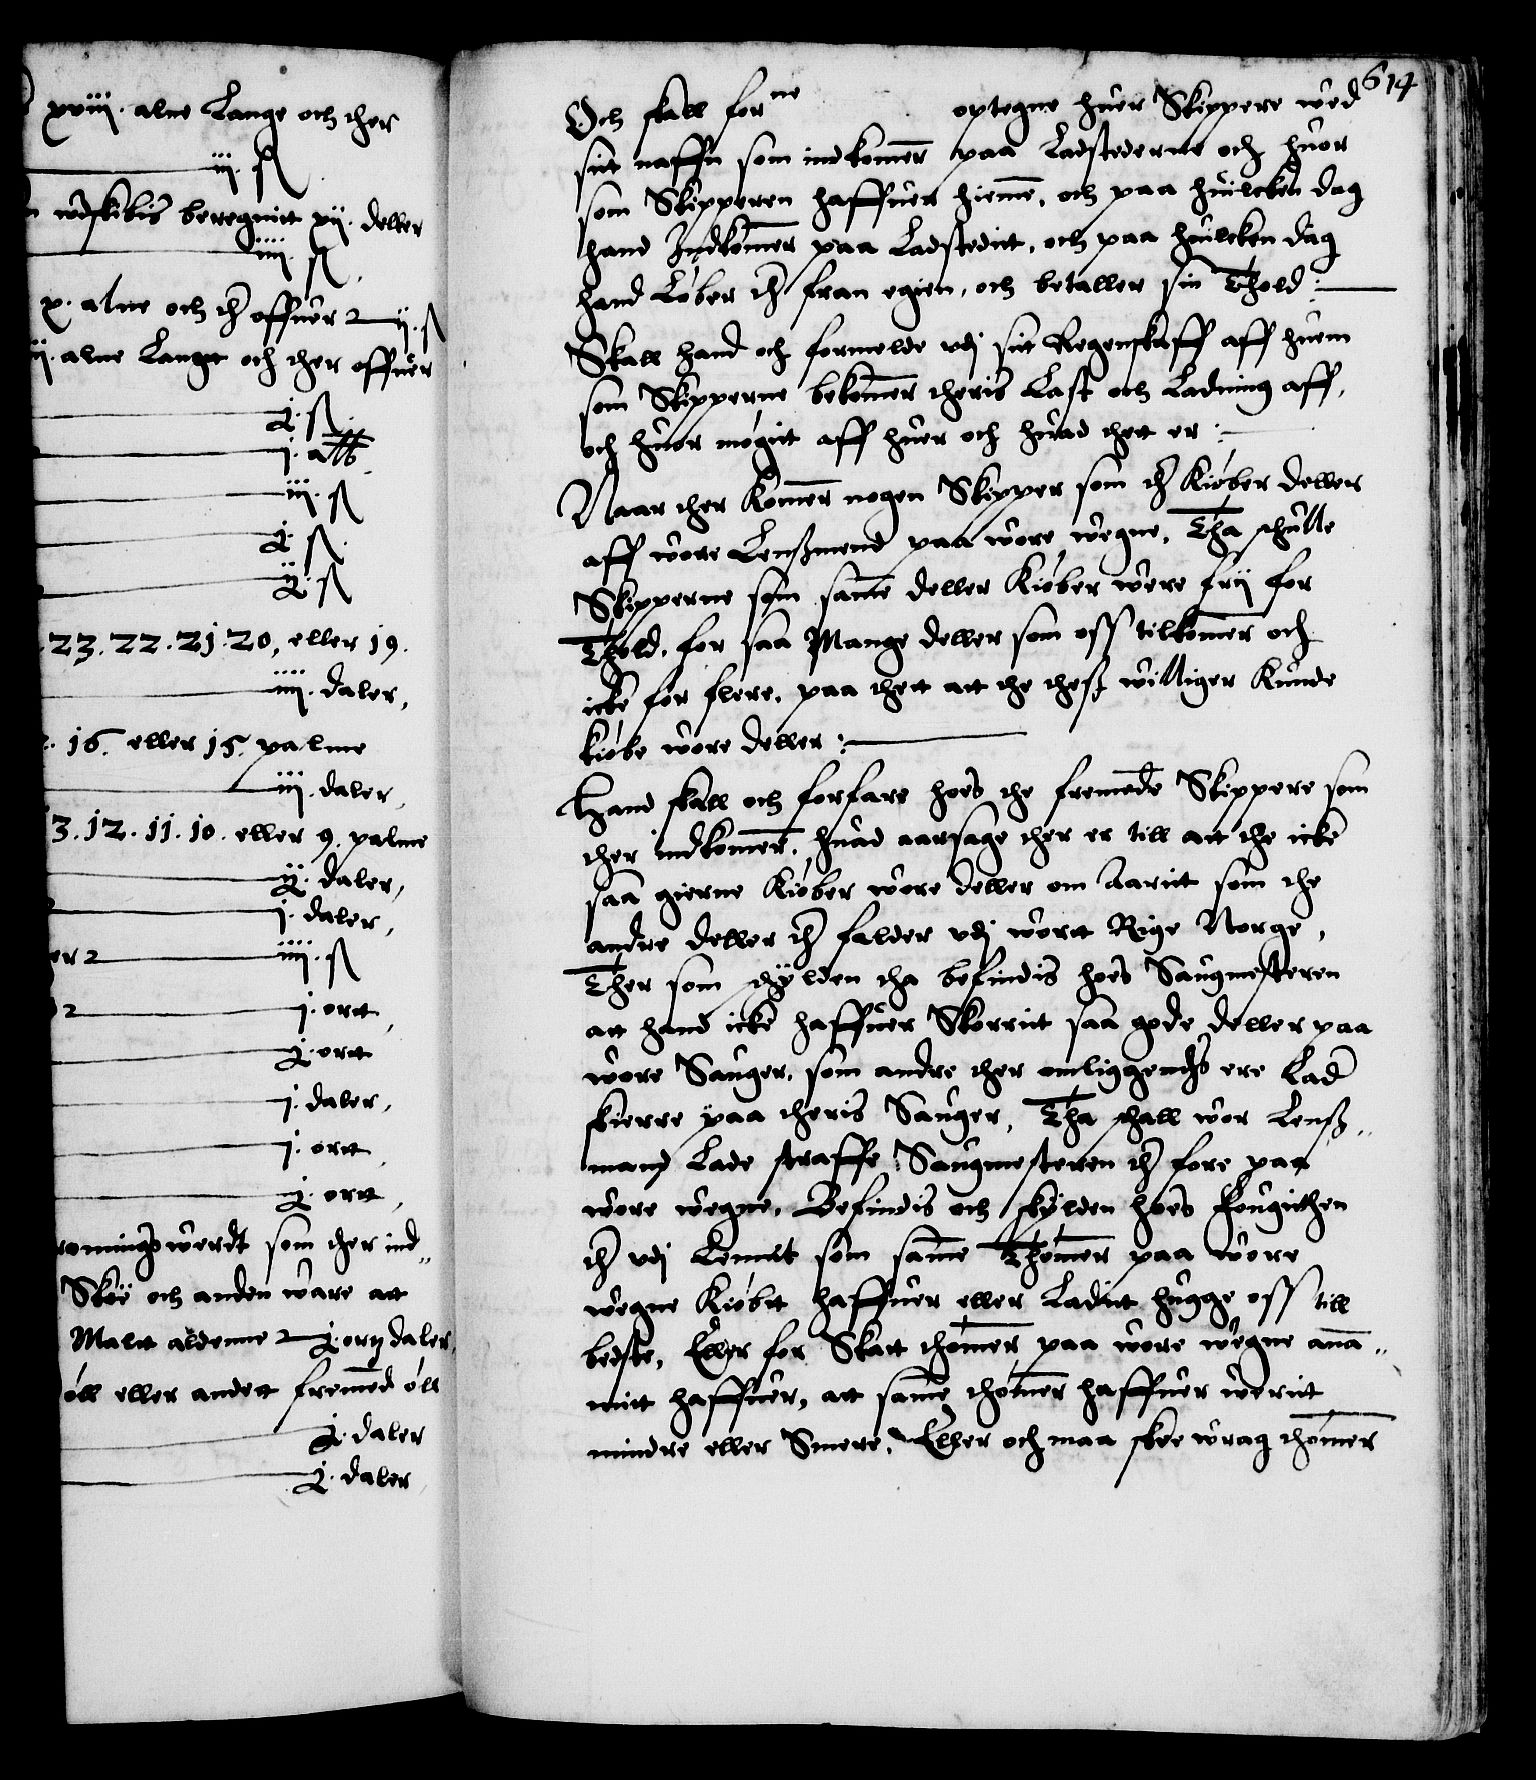 xviij. alne Lange och ther
iij. ß
wdskibis beregnitt xij. deller
iiij. ß
x. alne och ther offuer 2 ij. ß
ij. alne Langt och ther offuer
j. ß
j. alb
iij. ß
j. ß
ij. ß
23. 22. 21. 20, eller 19.
iiij. daler,
16. eller 15. palme
iij. daler,
3. 12. 11. 10. eller 9. palme
ij. daler,
j. daler,
er 2 iiij. ß
2 j. ortt
j. ortt
j. daler,
j. ortt
j. ortt,
werdt som ther ind„
Skøe och anden ware att
Malt aldenne 2 j. ortt daler,
øll eller andett fremed øll
j. daler
j. daler
614
Och skall forne optegne huer Skippere wed
sit naffn som indkomer paa Ladstederne och huor
som Skipperen haffuer hieme, och paa huilcken dag
hand Indkomer paa Ladstedit, och paa huilcken dag
hand Løber ther fran egien, och betaller sin Thold :
Skall hand och formelde vdj sit Regenskaff aff huem
som Skipperne bekomer theris Last och Ladning aff,
och huor møgitt aff huer och huad thet er :
Naar ther Komer nogen Skipper som ther Kiøber deller
aff wore Lenßmend paa wore wegne, Tha schulle
Skipperne som same deller Kiøber were frij for
Thold, for saa Mange deller som oss tilkomer och
icke for flere, paa thett att the theß williger Kunde
kiøbe wore deller :
Hand skall och forfare hoes the fremede Skippere som
ther indkomer, huad aarsage ther er till att the icke
saa gierne Kiøber wore deller om Aarit som the
andre deller ther falder vdj wort Rige Norge,
Ther som skylden tha befindis hoes Saugmesteren
att hand icke haffuer Skorrit saa gode deller paa
wore Sauger, som andre ther omliggendis ere Lad
skierre paa theris Sauger, Tha schall wor Lenß„
mand Lade straffe Saugmesteren ther fore paa
wore wegne, Befindis och skylden hoes Fougithen
ther vdj Lennit som same Thømer paa wore
wegne Kiøbt haffuer eller Ladit hugge oss till
bedste, Eller for Skatt thømer paa wore wegne ana„
mit haffuer, att same thømer haffuer werit
mindre eller Smere, Eller och maa skee wrag thømer